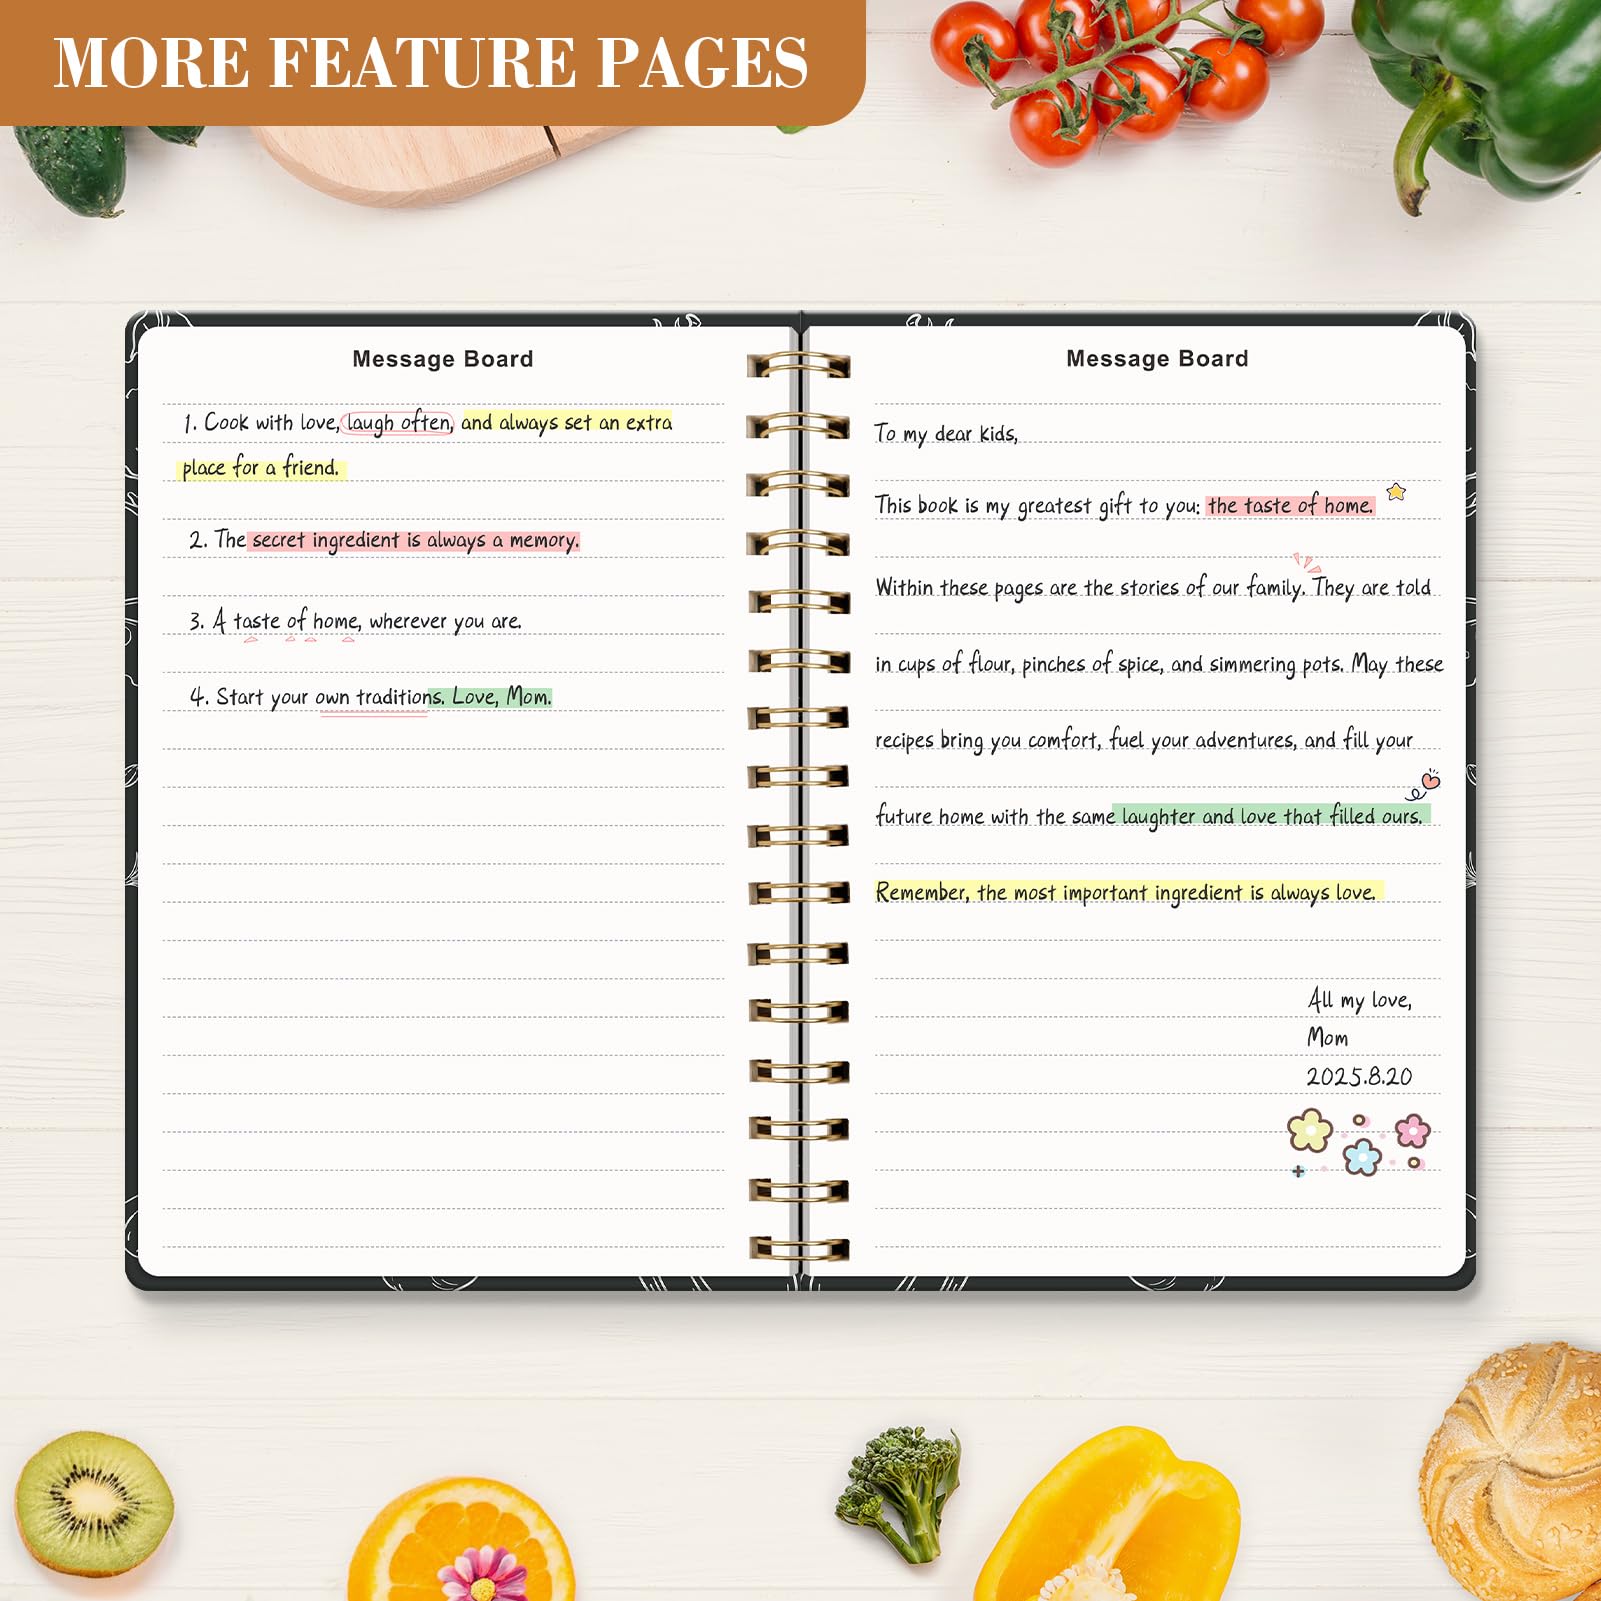 MORE FEATURE PAGES
Message Board
1. Cook with love, laugh often, and always set an extra
place for a friend.
2. The secret ingredient is always a memory.
3. A taste of home, wherever you are.
4. Start your own traditions. Love, Mom.
Message Board
To my dear kids,
This book is my greatest gift to you: the taste of home.
Within these pages are the stories of our family. They are told
in cups of flour, pinches of spice, and simmering pots. May these
recipes bring you comfort, fuel your adventures, and fill your
future home with the same laughter and love that filled ours.
Remember, the most important ingredient is always love.
All my love,
Mom
2025.8.20